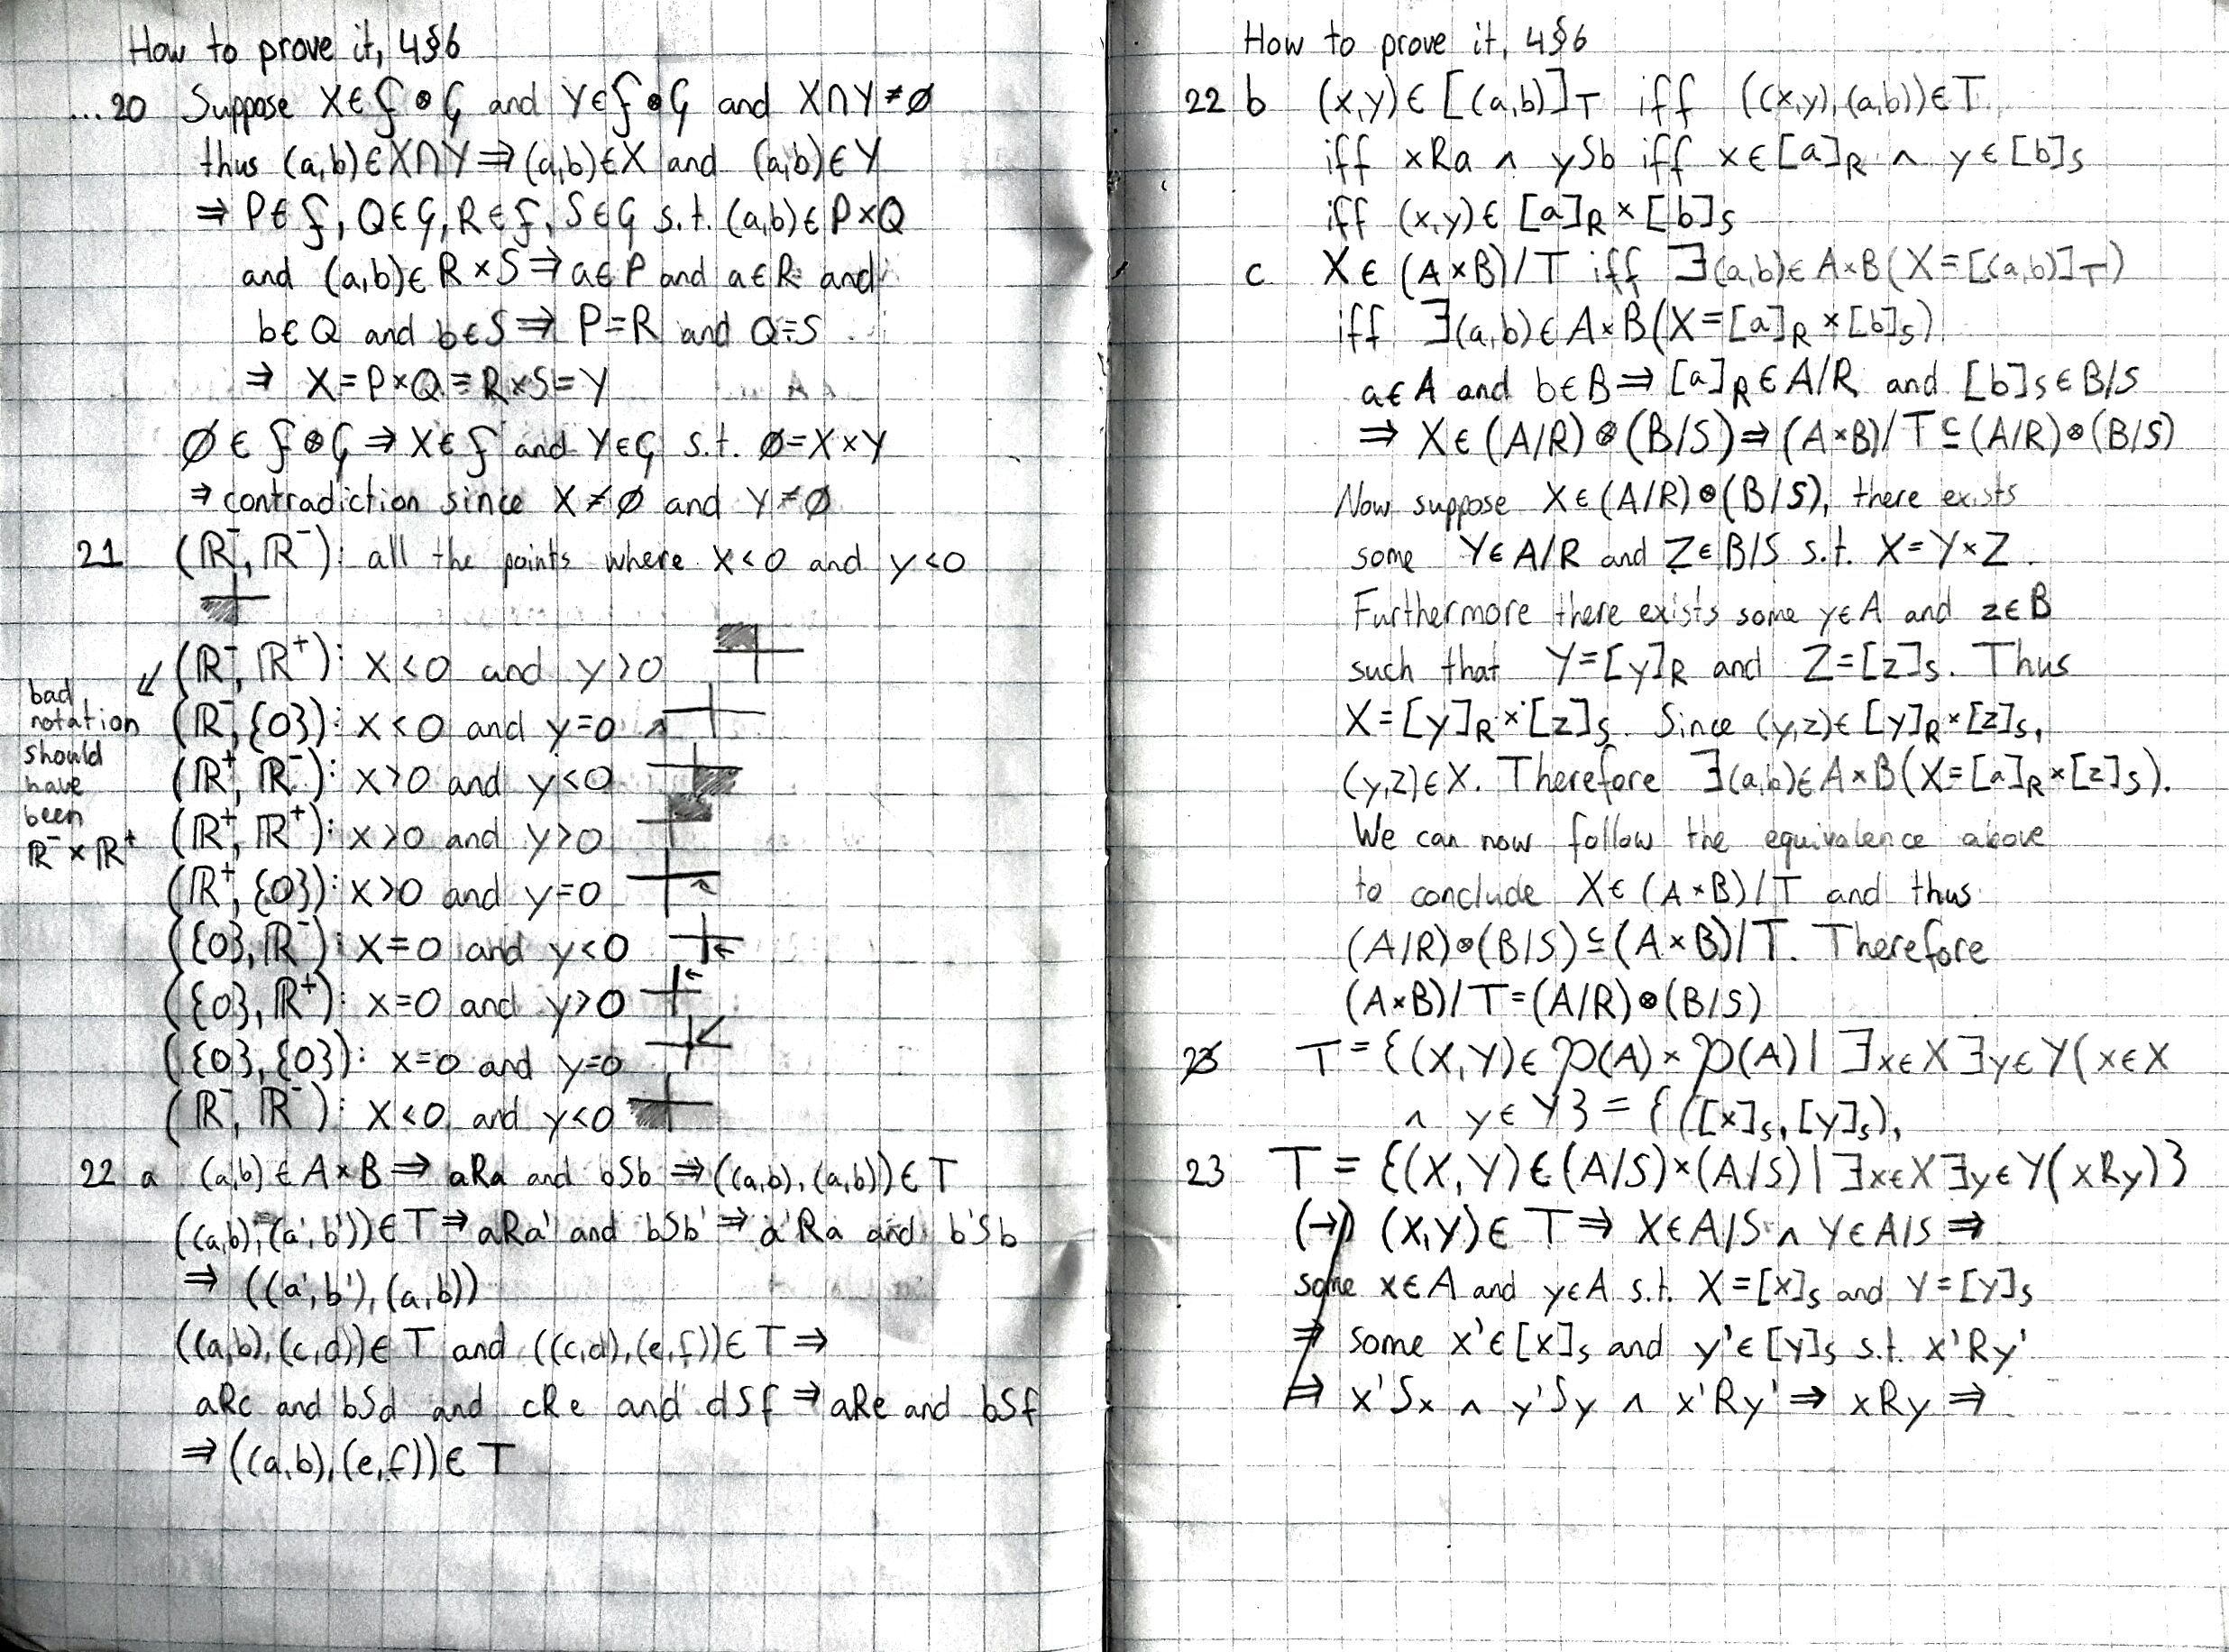 How to prove it, 4§6
...20 Suppose X∈F⊗G and Y∈F⊗G and X∩Y≠∅
thus (a,b)∈X∩Y⇒(a,b)∈X and (a,b)∈Y
⇒ P∈F, Q∈G, R∈F, S∈G s.t. (a,b)∈P×Q
and (a,b)∈R×S⇒a∈P and a∈R and
b∈Q and b∈S⇒ P=R and Q=S
⇒ X=P×Q=R×S=Y
∅∈F⊗G⇒X∈F and Y∈G s.t. ∅=X×Y
⇒contradiction since X≠∅ and Y≠∅
21 (ℝ⁻,ℝ⁻): all the points where x<0 and y<0
(ℝ⁻,ℝ⁺): x<0 and y>0
bad notation should have been ℝ⁻×ℝ⁺
(ℝ⁻,{0}): x<0 and y=0
(ℝ⁺,ℝ⁻): x>0 and y<0
(ℝ⁺,ℝ⁺): x>0 and y>0
(ℝ⁺,{0}): x>0 and y=0
({0},ℝ⁻): x=0 and y<0
({0},ℝ⁺): x=0 and y>0
({0},{0}): x=0 and y=0
(ℝ⁻,ℝ⁻): x<0 and y<0
22 a (a,b)∈A×B⇒ aRa and bSb⇒((a,b),(a,b))∈T
((a,b),(a',b'))∈T⇒aRa' and bSb'⇒a'Ra and b'Sb
⇒ ((a',b'),(a,b))
((a,b),(c,d))∈T and ((c,d),(e,f))∈T⇒
aRc and bSd and cRe and dSf⇒aRe and bSf
⇒((a,b),(e,f))∈T
How to prove it, 4§6
22 b (x,y)∈[(a,b)]T iff ((x,y),(a,b))∈T
iff xRa ∧ ySb iff x∈[a]R ∧ y∈[b]S
iff (x,y)∈[a]R×[b]S
c X∈(A×B)/T iff ∃(a,b)∈A×B(X=[(a,b)]T)
iff ∃(a,b)∈A×B(X=[a]R×[b]S)
a∈A and b∈B⇒[a]R∈A/R and [b]S∈B/S
⇒ X∈(A/R)⊗(B/S)⇒(A×B)/T⊆(A/R)⊗(B/S)
Now suppose X∈(A/R)⊗(B/S), there exists
some Y∈A/R and Z∈B/S s.t. X=Y×Z.
Furthermore there exists some y∈A and z∈B
such that Y=[y]R and Z=[z]S. Thus
X=[y]R×[z]S. Since (y,z)∈[y]R×[z]S,
(y,z)∈X. Therefore ∃(a,b)∈A×B(X=[a]R×[z]S).
We can now follow the equivalence above
to conclude X∈(A×B)/T and thus
(A/R)⊗(B/S)⊆(A×B)/T. Therefore
(A×B)/T=(A/R)⊗(B/S)
23 T={(X,Y)∈𝒫(A)×𝒫(A)| ∃x∈X∃y∈Y(x∈X
∧ y∈Y}={([x]S,[y]S),
23 T={(X,Y)∈(A/S)×(A/S)|∃x∈X∃y∈Y(xRy)}
(→) (X,Y)∈T⇒X∈A/S∧Y∈A/S⇒
some x∈A and y∈A s.t. X=[x]S and Y=[y]S
⇒ some x'∈[x]S and y'∈[y]S s.t. x'Ry'
⇒ x'Sx ∧ y'Sy ∧ x'Ry'⇒ xRy⇒